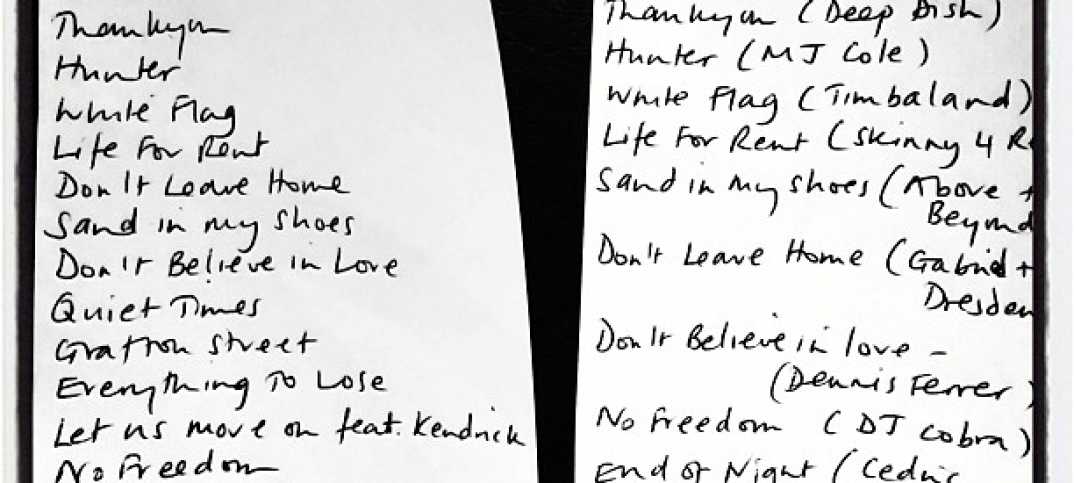 Thankyou
Hunter
White Flag
Life For Rent
Don't Leave Home
Sand in my shoes
Don't Believe in Love
Quiet Times
Grafton Street
Everything To Lose
Let us move on feat. Kendrick
No Freedom
Thankyou (Deep Dish)
Hunter (MJ Cole)
White Flag (Timbaland)
Life For Rent (Skinny 4 R
Sand in my shoes (Above +
Beyond
Don't Leave Home (Gabriel +
Dresden
Don't Believe in love -
(Dennis Ferrer)
No Freedom (DJ Cobra)
End of Night (Cedric